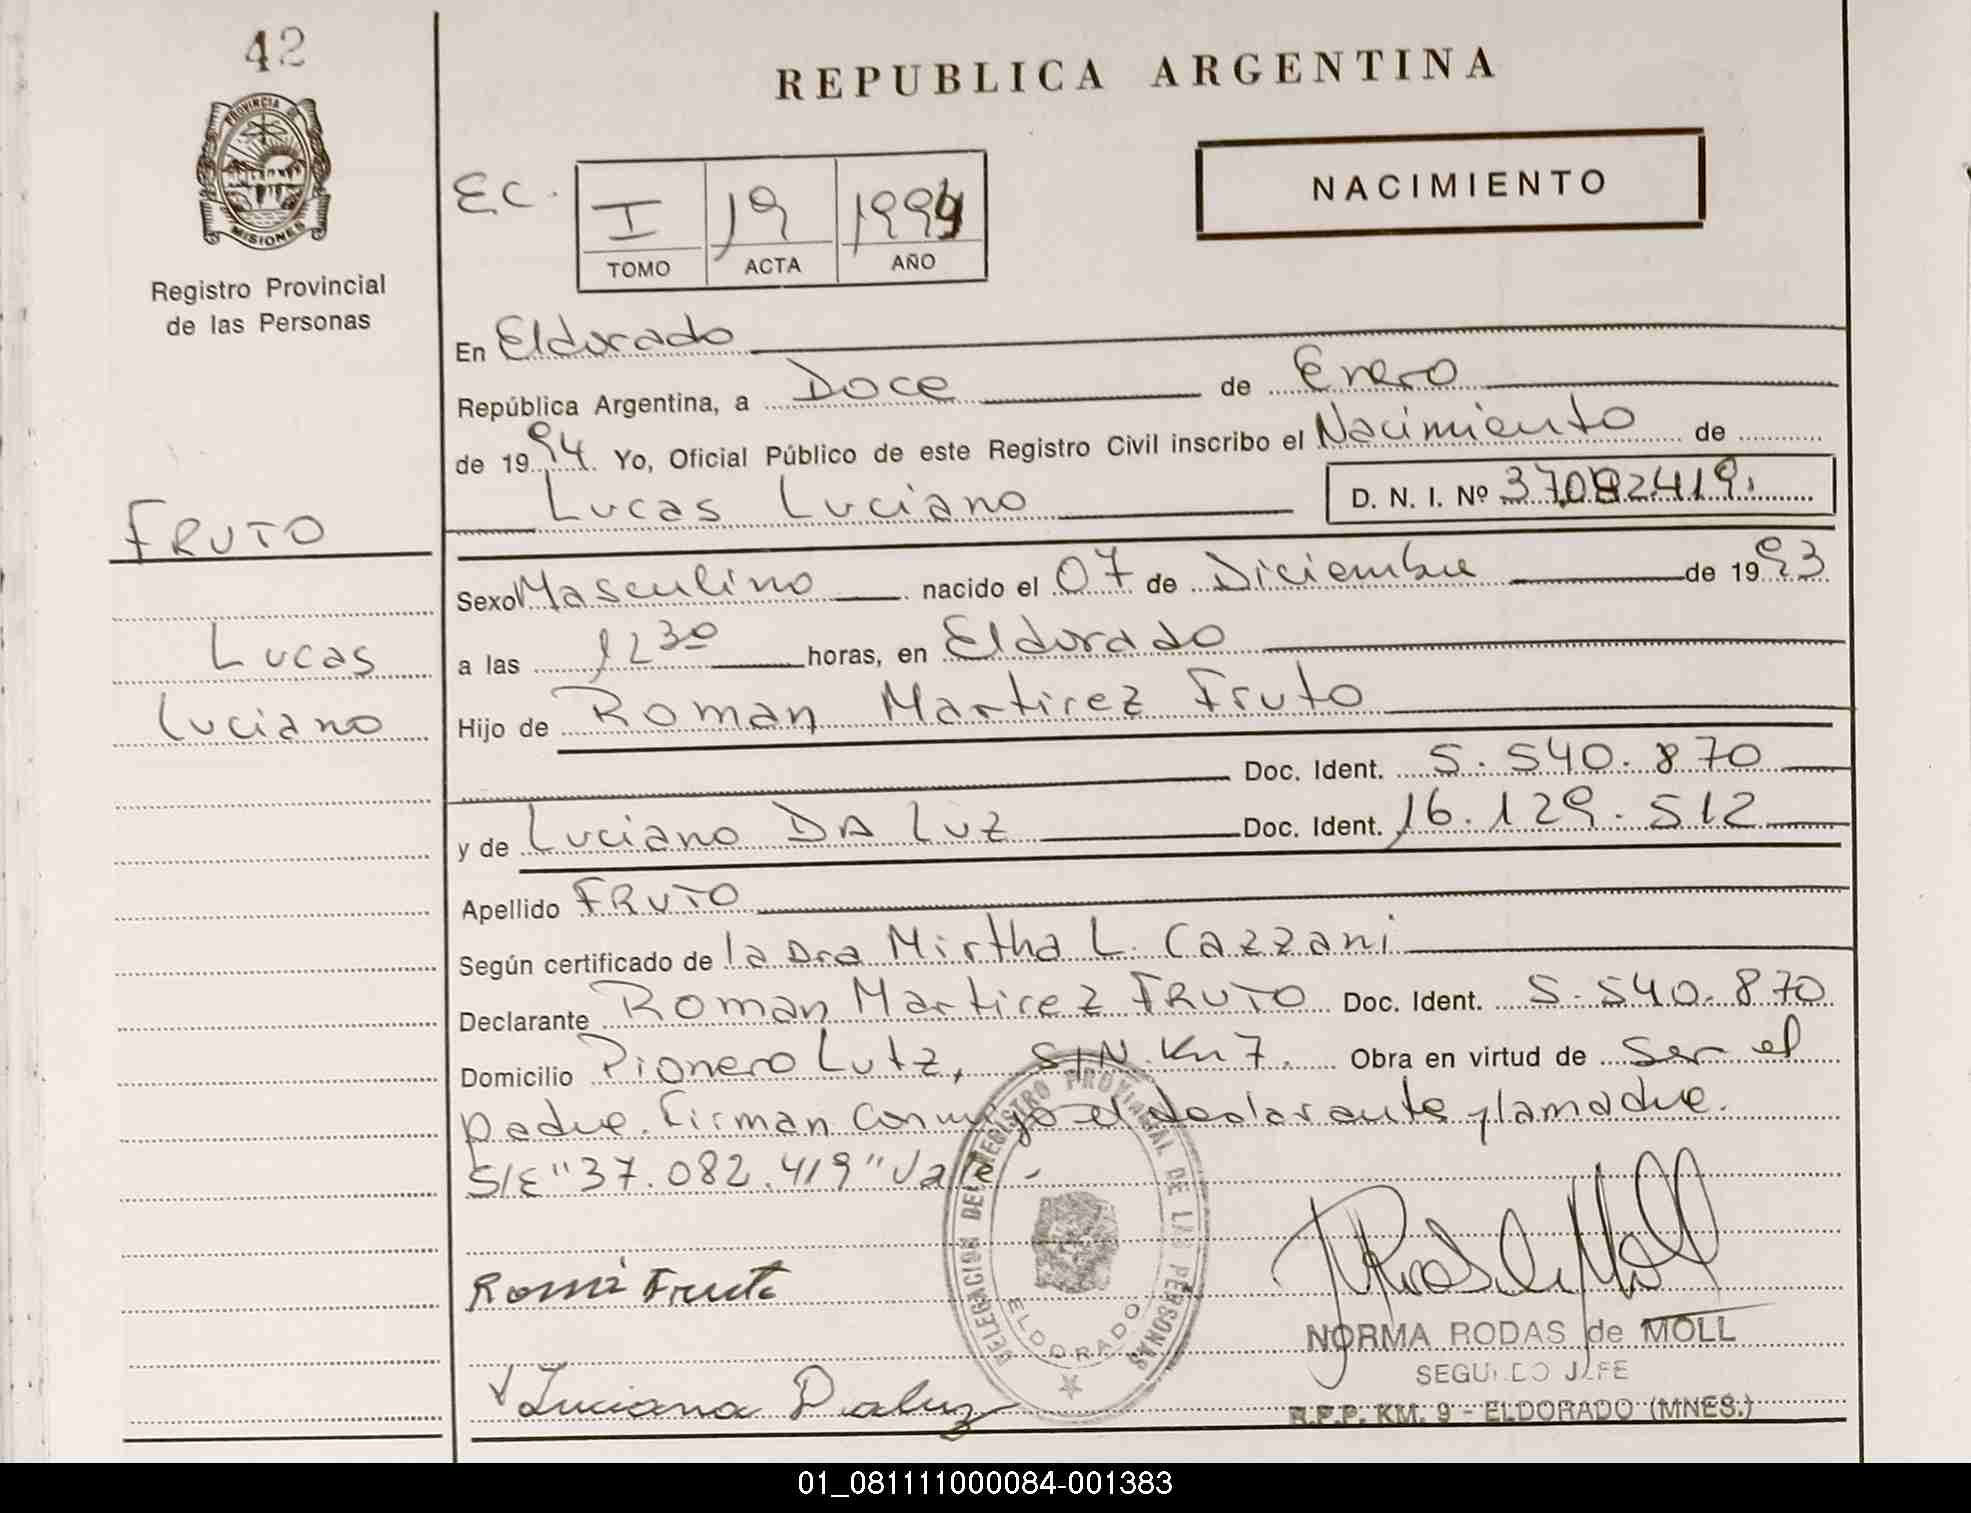 42
REPUBLICA ARGENTINA
PROVINCIA
MISIONES
Registro Provincial
de las Personas
EC.
I 19 1994
TOMO ACTA AÑO
NACIMIENTO
En Eldorado
República Argentina, a Doce de Enero
de 1994. Yo, Oficial Público de este Registro Civil inscribo el Nacimiento de
Lucas Luciano D. N. I. Nº 37082419.
FRUTO
Lucas
Luciano
Sexo Masculino nacido el 07 de Diciembre de 1993
a las 1230 horas, en Eldorado
Hijo de Roman Martirez Fruto
Doc. Ident. 5.540.870
y de Luciano DA LUZ Doc. Ident. 16.129.512
Apellido FRUTO
Según certificado de la Dra Mirtha L. Cazzani
Declarante Roman Martirez FRUTO Doc. Ident. 5.540.870
Domicilio Pionero Lutz, S/N. Km 7. Obra en virtud de ser el
padre. Firman conmigo el declarante y la madre.
S/E "37.082.419" Vale -
DELEGACION DEL REGISTRO PROVINCIAL DE LAS PERSONAS
ELDORADO
Roman Fruto
Luciana Daluz
NORMA RODAS de MOLL
SEGUNDO JEFE
R.P.P. KM. 9 - ELDORADO (MNES.)
01_081111000084-001383